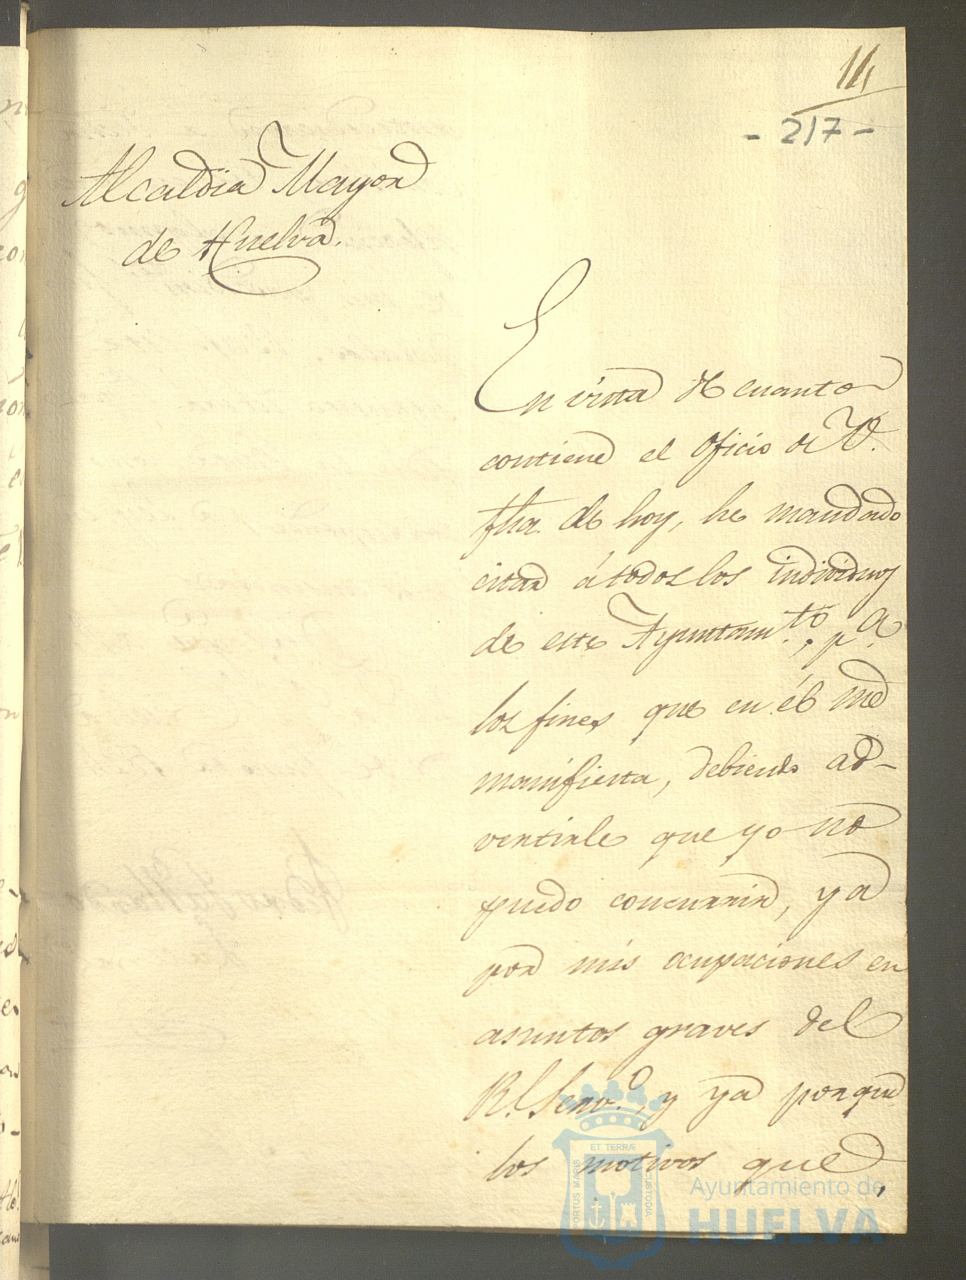 11
- 217 -
Alcaldia Mayor
de Huelva.
En vista de cuanto
contiene el Oficio de V.
fha. de hoy, he mandado
citar á todos los individuos
de este Ayuntam.to, p.a
los fines que en él me
manifiesta, debiendo ad-
vertirle que yo no
puedo concurrir, ya
por mis ocupaciones en
asuntos graves del
R.l Serv.o, y ya porque
los motivos que,
ET TERRÆ
PORTUS MARIS
CUSTODIA
Ayuntamiento de
HUELVA